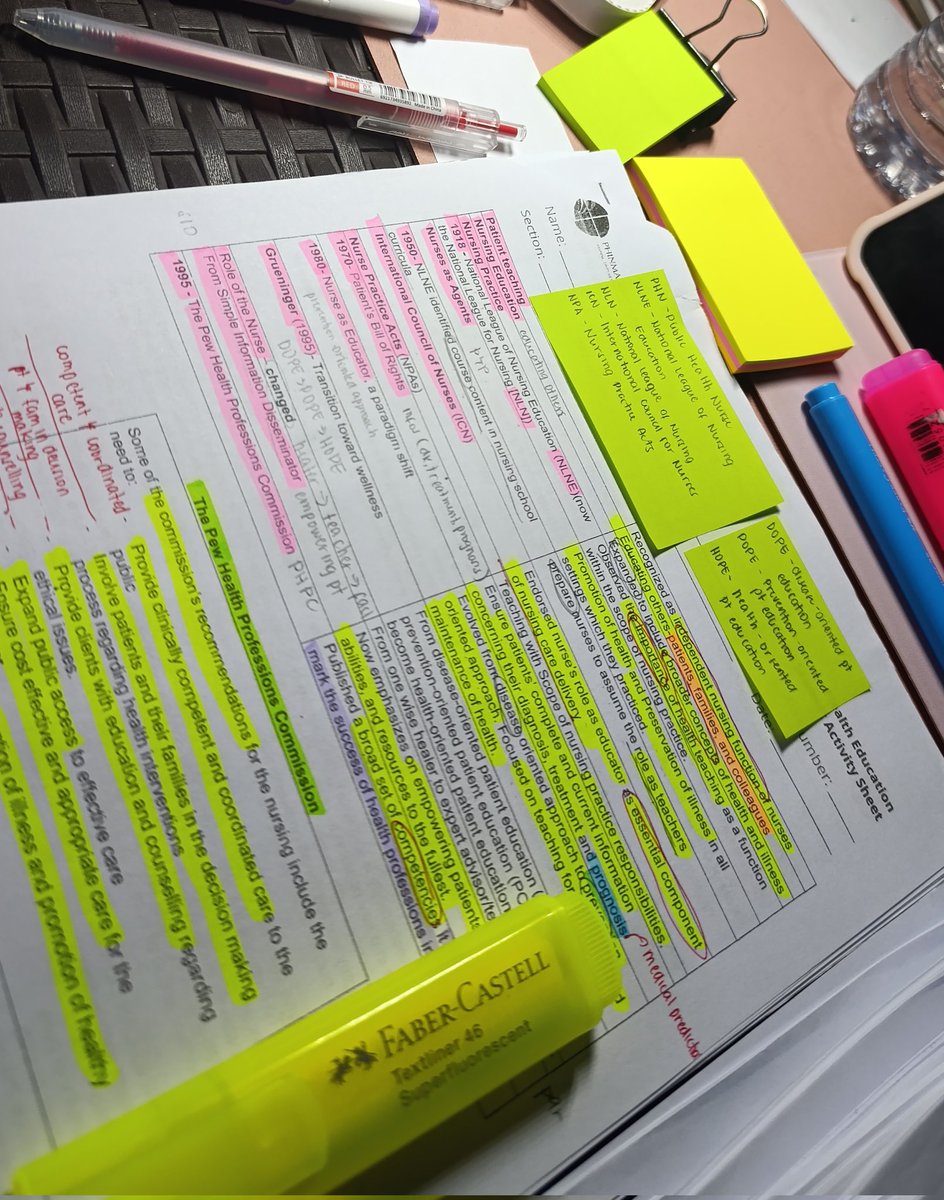 PHINMA
Name:
Section:
Health Education
Activity Sheet
Date:
PHN - Public Health Nurse
NLNE - National League of Nursing
Education
NLN - National league of Nursing
ICN - International Council for Nurses
NPA - Nursing Practice Acts
DOPE - disease-oriented pt
education
POPE - Prevention oriented
pt education
HOPE - Health-oriented
pt education
Patient teaching
educating others
Nursing Education
Nursing Practice
1918 - National League of Nursing Education (NLNE)(now
the National League for Nursing [NLN])
Nurses as Agents
1950- NLNE identified course content in nursing school
curricula
International Council of Nurses (ICN)
Nurse Practice Acts (NPAs)
1970- Patient's Bill of Rights
1980- Nurse as Educator, a paradigm shift
prevention oriented approach
Grueninger (1995)- Transition toward wellness
DOPE → POPE → HOPE
Role of the Nurse changed
From Simple Information Disseminator
empowering pt
1995 - The Pew Health Professions Commission
PHPC
Recognized as independent nursing function of nurses
Educating others: patients, families, and colleagues
Expanded to include broader concepts of health and illness
Observed the importance of health teaching as a function
within the scope of nursing practice.
Promotion of health and Preservation of illness in all
settings which they practiced.
prepare nurses to assume the role as teachers
Endorsed nurse's role as educator is essential component
of nursing care delivery
Teaching with Scope of nursing practice responsibilities.
Ensure patients' complete and current information
concerning their diagnosis, treatment and prognosis
medical
Evolved from disease oriented approach to
oriented approach. Focused on teaching for
maintenance of health.
From disease-oriented patient education
prevention-oriented patient education
become health-oriented patient education
From one wise healer to expert advisor/
Now emphasizes on empowering patients
abilities, and resources to the fullest
Published a broad set of competencies it
mark the success of health professions in
The Pew Health Professions Commission
Some of the commission's recommendations for the nursing include the
need to:
Provide clinically competent and coordinated care to the
public
Involve patients and their families in the decision making
process regarding health interventions
Provide clients with education and counselling regarding
ethical issues.
Expand public access to effective care
Ensure cost effective and appropriate care for the
of illness and promotion of healthy
competent & coordinated -
care
pt & fam in decision -
making
counselling
FABER-CASTELL
Textliner 46
Superfluorescent
RED
Made in China